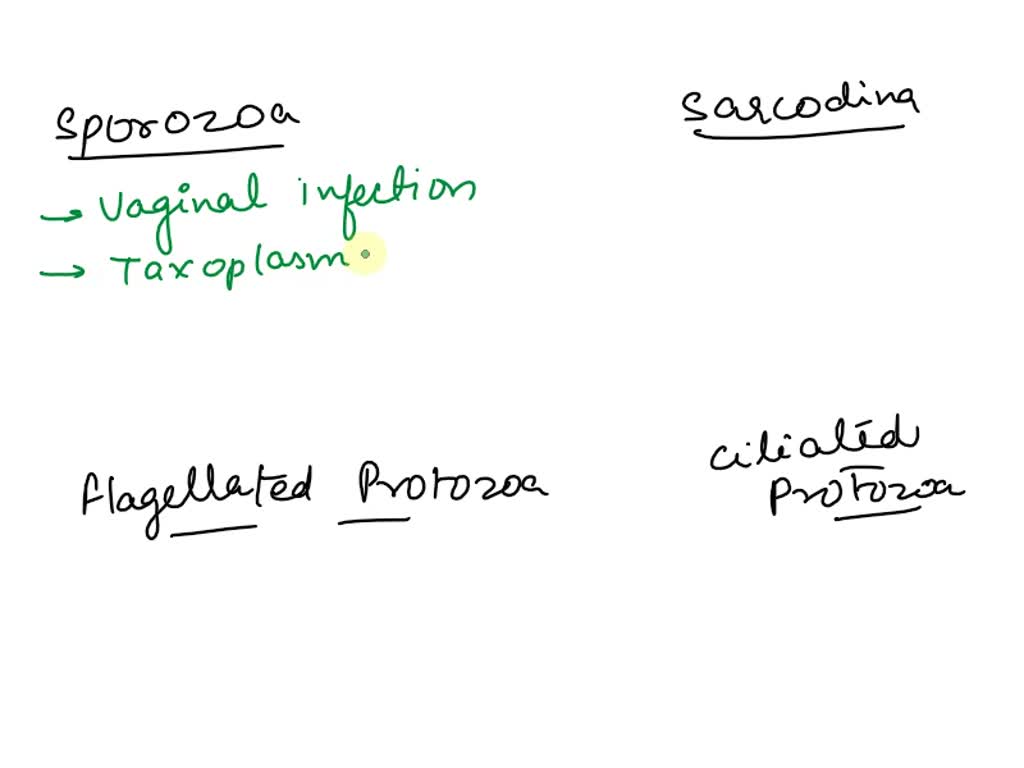 Sporozoa
→ Vaginal infection
→ Taxoplasm
Sarcodina
flagellated Protozoa
ciliated
Protozoa